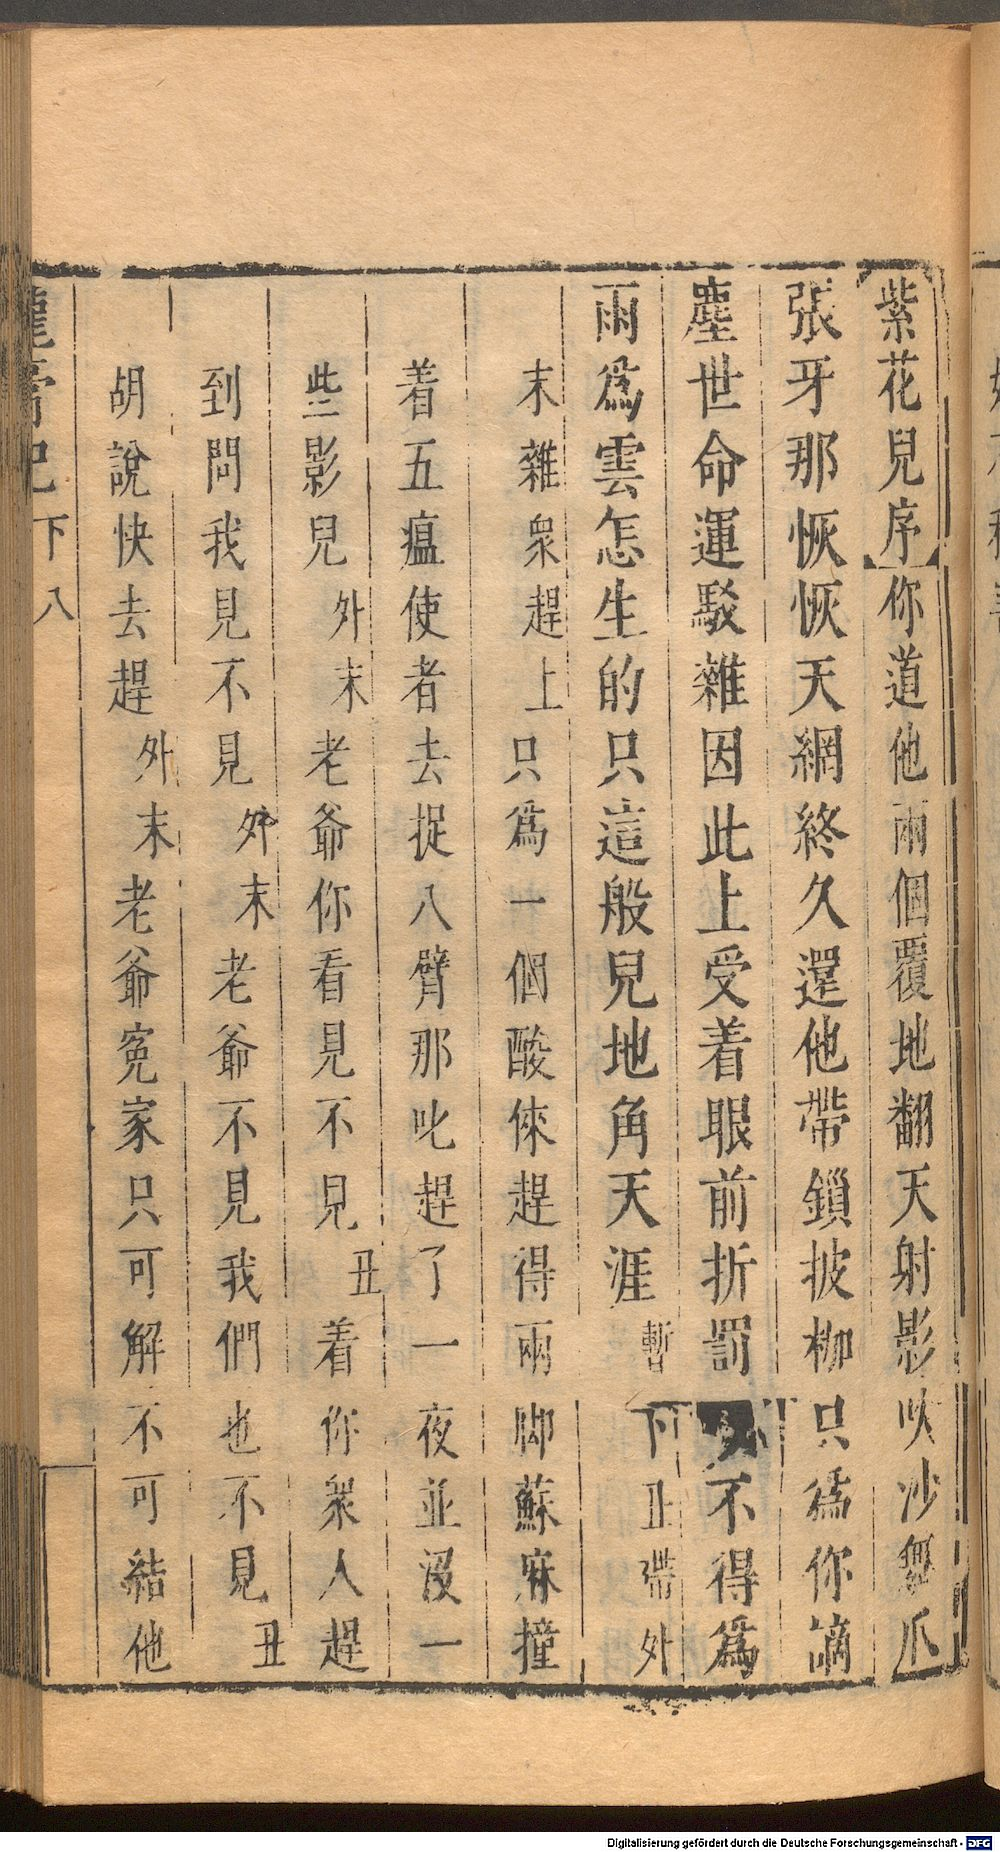 紫花兒序你道他兩個覆地翻天射影吹沙舞爪
張牙那恢恢天網終久還他帶鎖披枷只為你謫
塵世命運駁雜因此上受着眼前折罰不得為
雨為雲怎生的只這般兒地角天涯暫下丑帶外
末雜衆趕上只為一個酸倈趕得兩脚蘇麻撞
着五瘟使者去捉八臂那叱趕了一夜並沒一
些影兒外末老爺你看見不見丑着你衆人趕
到問我見不見外末老爺不見我們也不見丑
胡說快去趕外末老爺寃家只可解不可結他
龍膏記 下 八
Digitalisierung gefördert durch die Deutsche Forschungsgemeinschaft - DFG